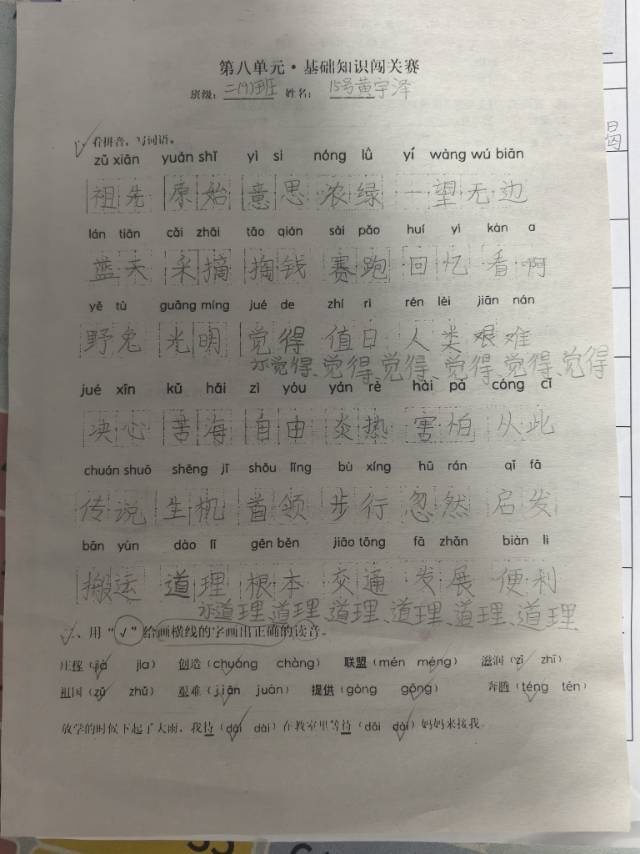 第八单元·基础知识闯关赛
班级：二(9)班 姓名：15号黄宇泽
一、看拼音，写词语。
zǔ xiān yuán shǐ yì si nóng lǜ yí wàng wú biān
祖先 原始 意思 浓绿 一望无边
lán tiān cǎi zhāi tāo qián sài pǎo huí yì kàn a
蓝天 采摘 掏钱 赛跑 回忆 看啊
yě tù guāng míng jué de zhí rì rén lèi jiān nán
野兔 光明 觉得 值日 人类 艰难
觉得、觉得、觉得、觉得、觉得、觉得
jué xīn kǔ hǎi zì yóu yán rè hài pà cóng cǐ
决心 苦海 自由 炎热 害怕 从此
chuán shuō shēng jī shǒu lǐng bù xíng hū rán qǐ fā
传说 生机 首领 步行 忽然 启发
bān yùn dào lǐ gēn běn jiāo tōng fā zhǎn biàn lì
搬运 道理 根本 交通 发展 便利
道理、道理、道理、道理、道理、道理
二、用“√”给画横线的字画出正确的读音。
创造（chuàng chàng） 联盟（mén méng） 滋润（zī zhī）
祖国（zǔ zhǔ） 艰难（jiān juān） 提供（gòng gōng） 奔腾（téng tén）
放学的时候下起了大雨，我待（dāi dài）在教室里等待（dāi dài）妈妈来接我。